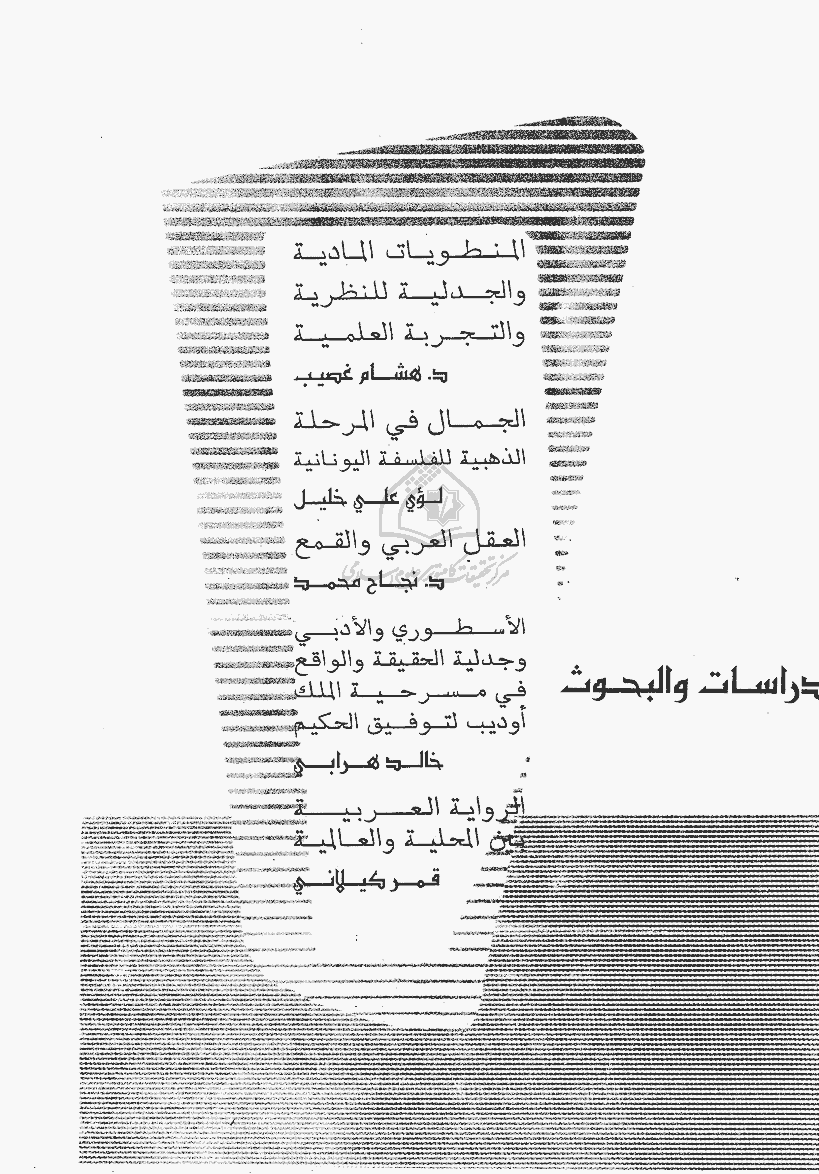 المنطويات المادية
والجدلية للنظرية
والتجربة العلمية
د. هشام غصيب
الجمال في المرحلة
الذهبية للفلسفة اليونانية
لؤي علي خليل
العقل العربي والقمع
د. نجاح محمد
الأسطوري والأدبي
وجدلية الحقيقة والواقع
في مسرحية الملك
أوديب لتوفيق الحكيم
خالد هرابي
الرواية العربية
بين المحلية والعالمية
قمر كيلاني
دراسات والبحوث